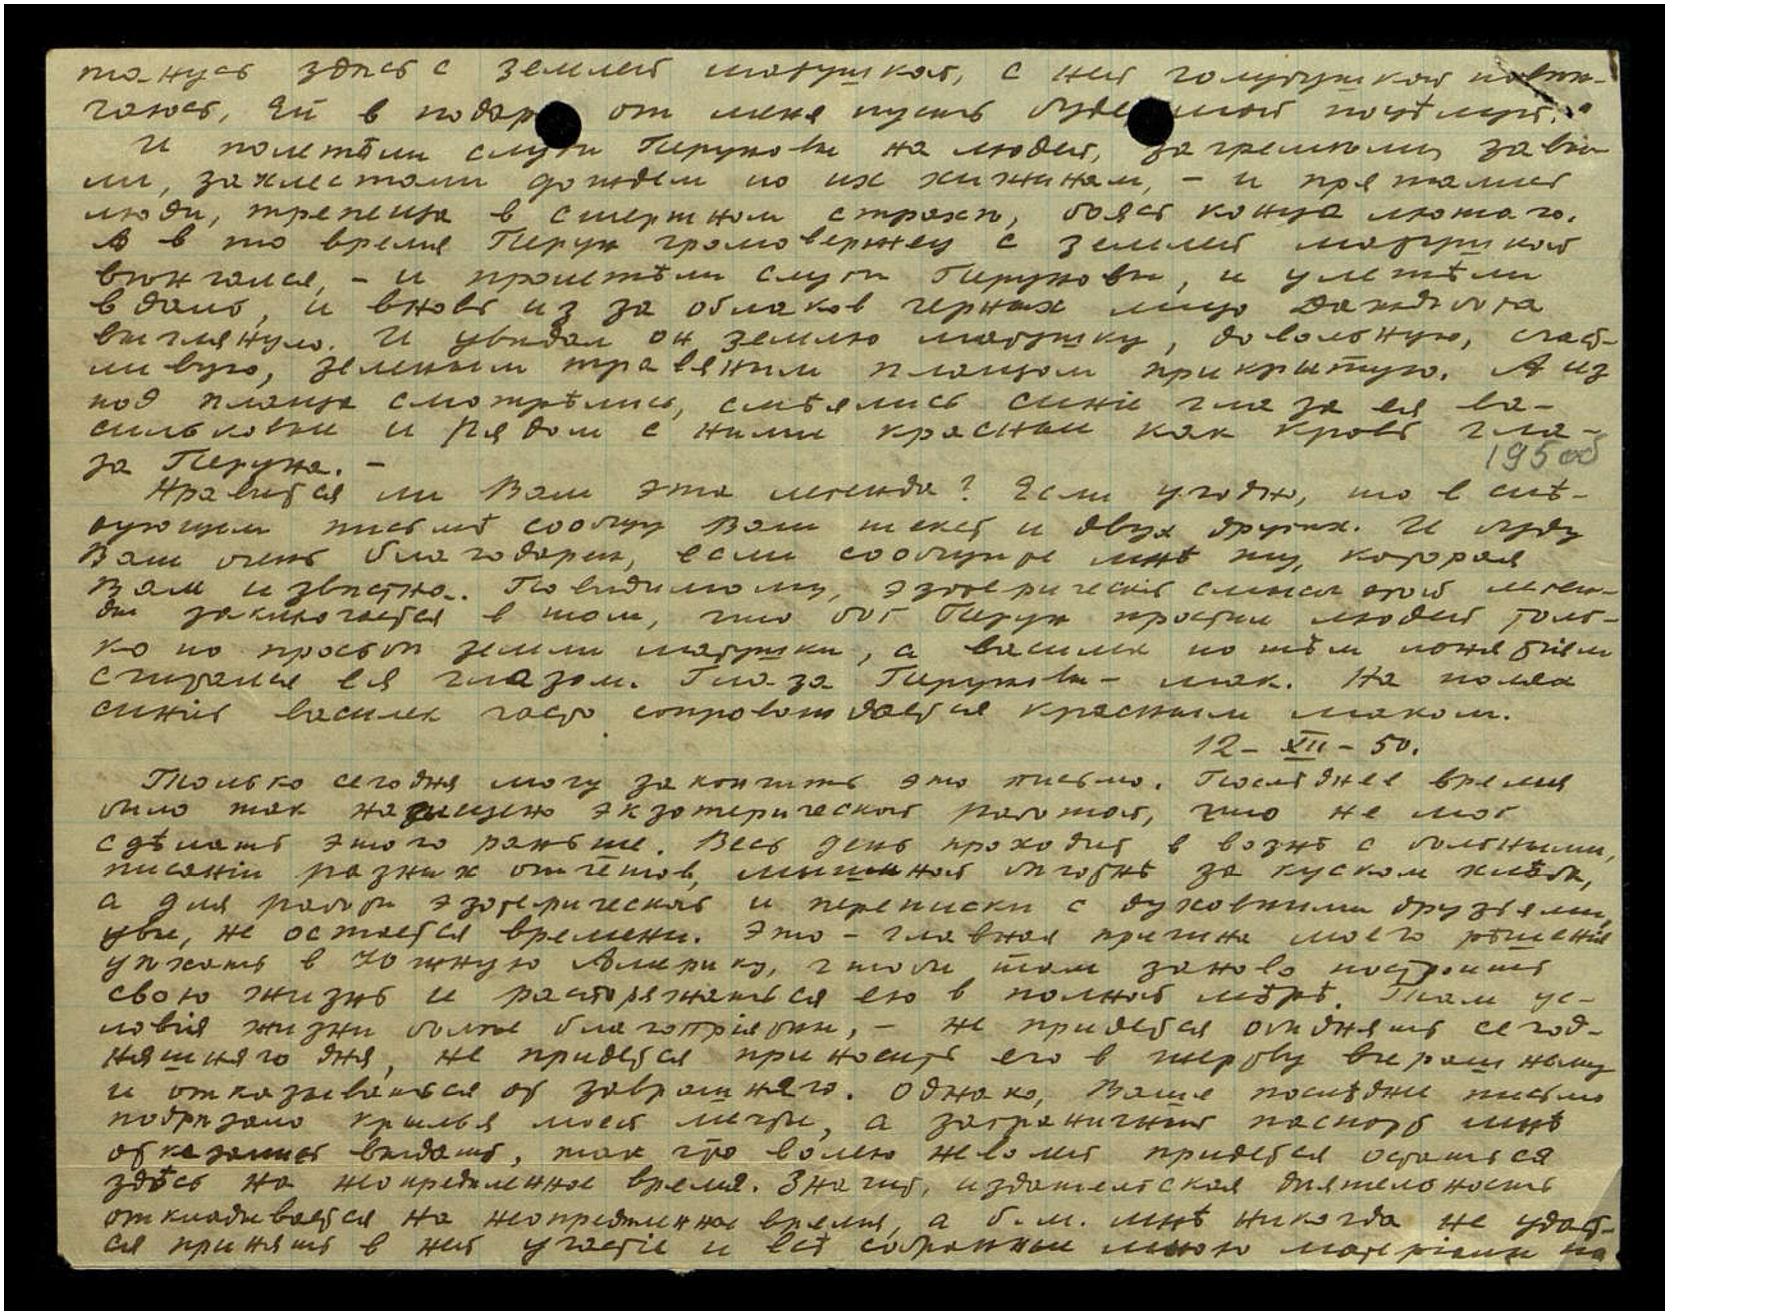 танусь здѣсь с землей матушкой, с ней голубушкой повѣн-
чаюсь, ей в подарок от меня пусть будет мой поцѣлуй."
И полетѣли слуги Перуновы на людей, загремѣли, завы-
ли, захлестали дождем по их хижинам, - и прятались
люди, трепеща в смертном страхѣ, боясь конца лютаго.
А в то время Перун громовержец с землей матушкой
вѣнчался, - и пролетѣли слуги Перуновы, и улетѣли
в даль, и вновь из за облаков черных лицо Даждьбога
выглянуло. И увидал он землю матушку, довольную, счаст-
ливую, зеленым травяным плащом прикрытую. А из
под плаща смотрѣлись, смѣялись синіе глаза ея ва-
сильковы и рядом с ними красныи как кровь гла-
за Перуна. -
195 об
Нравится ли Вам эта легенда? Если угодно, то в слѣ-
дующем письмѣ сообщу Вам текст и двух других. И буду
Вам очень благодарен, если сообщите мнѣ ту, которая
Вам извѣстна. Повидимому, эзотерическій смысл этой леген-
ды заключается в том, что бог Перун простил людей толь-
ко по просьбѣ земли матушки, а василек по тѣм понятіям
считался ея глазом. Глаза Перуновы - мак. На полях
синій василек часто сопровождается красным маком.
12 - XII - 50.
Только сегодня могу закончить это письмо. Послѣднее время
было так насыщено экзотерической работой, что не мог
сдѣлать этого раньше. Весь день проходит в вознѣ с больными,
писаніи разных отчетов, мышиной бѣготнѣ за куском хлѣба,
а для работы эзотерической и переписки с духовными друзьями,
увы, не остается времени. Это - главная причина моего рѣшенія
уѣхать в Южную Америку, чтобы там заново построить
свою жизнь и распоряжаться ею в полной мѣрѣ. Там ус-
ловія жизни болѣе благопріятны, - не придется отнимать сегод-
няшняго дня, не придется приносить его в жертву вчерашнему
и отказываться от завтрашняго. Однако, Ваше послѣднее письмо
подрѣзало крылья моей мечты, а заграничный паспорт мнѣ
отказались выдать, так что волею неволей придется остаться
здѣсь на неопредѣленное время. Значит, издательская дѣятельность
откладывается на неопредѣленное время, а б.м. мнѣ никогда не удаст-
ся принять в ней участіе и всѣ собранные мною матеріалы по